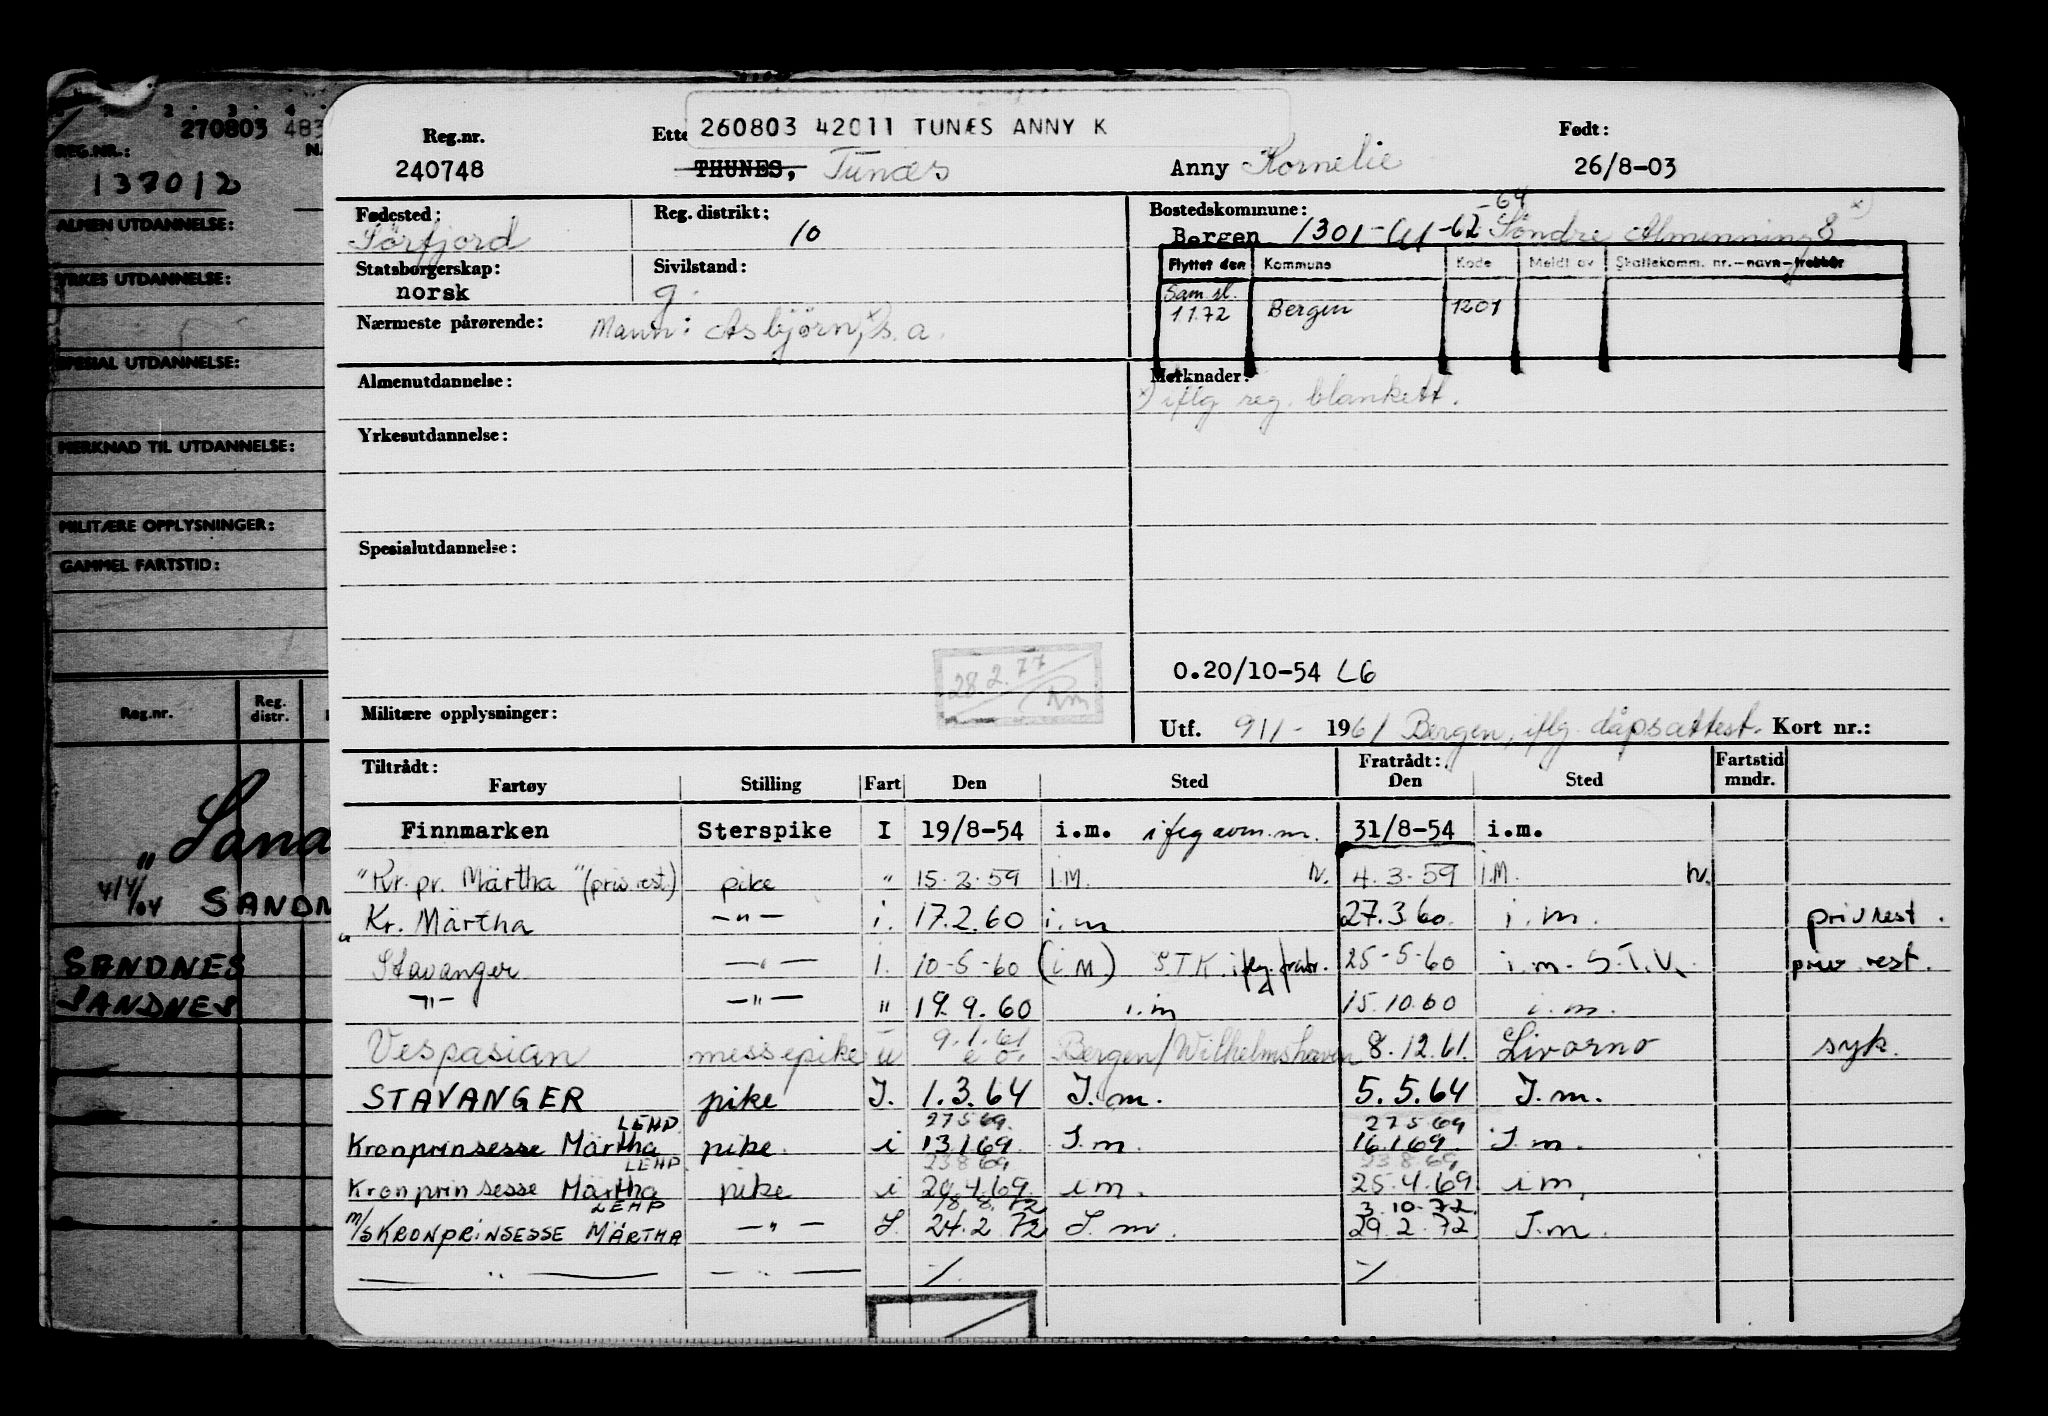 270803 483
REG.NR.:
137012
ALMEN UTDANNELSE:
YRKES UTDANNELSE:
SPESIAL UTDANNELSE:
MERKNAD TIL UTDANNELSE:
MILITÆRE OPPLYSNINGER:
GAMMEL FARTSTID:
Reg.nr. Reg. distr.
SANDNES
SANDNES
260803 42011 TUNÆS ANNY K
Reg.nr. Ette Født:
240748 THUNES, Tunæs Anny Kornelie 26/8-03
Fødested: Reg. distrikt: Bostedskommune: -64
Sörfjord 10 Bergen 1301-61-62 Söndre Almenning 8 x)
Statsborgerskap: Sivilstand: Flyttet den Kommune Kode Meldt av Skattekomm. nr.-navn-trekkår
norsk g. Sam.sl.
1.1.72 Bergen 1201
Nærmeste pårørende: Mann: Asbjörn, x) s.a.
Almenutdannelse: Merknader:
x) iflg reg. blankett.
Yrkesutdannelse:
Spesialutdannelse:
28.2.77
Rm
O.20/10-54 LG
Militære opplysninger: Utf. 9/1- 1961 Bergen, iflg. dåpsattest. Kort nr.:
Tiltrådt: Fratrådt: Fartstid
Fartøy Stilling Fart Den Sted Den Sted mndr.
Finnmarken Sterspike I 19/8-54 i.m. iflg avm.m. 31/8-54 i.m.
"Kr. pr. Märtha" (priv. rest.) pike " 15.2.59 I.M. h. 4.3.59 I.M. h.
Kr. Märtha -"- i. 17.2.60 i.m 27.3.60. i.m. priv rest.
Stavanger -"- i. 10-5-60 (i.M) S.T.K. iflg. fratr. 25-5-60 i.m. S.T.V. priv. rest.
-"- -"- " 19.9.60 i.m 15.10.60 i.m.
Vespasian messepike u 9.1.61 e.o. Bergen/Wilhelmshaven 8.12.61. Livorno syk.
STAVANGER pike I. 1.3.64 I.m. 5.5.64 I.m.
LEHP 27.5.69. 27.5.69
Kronprinsesse Märtha pike. i 13.1.69. I.m. 16.1.69. I.m.
LEHP 23.8.69 23.8.69
Kronprinsesse Märtha pike i 20.4.69 i.m. 25.4.69. i.m.
LEHP 18.8.72 3.10.72.
m/s KRONPRINSESSE MÄRTHA -"- I. 24.2.72 I.m. 29.2.72 I.m.
-"- -"- -/. -/.